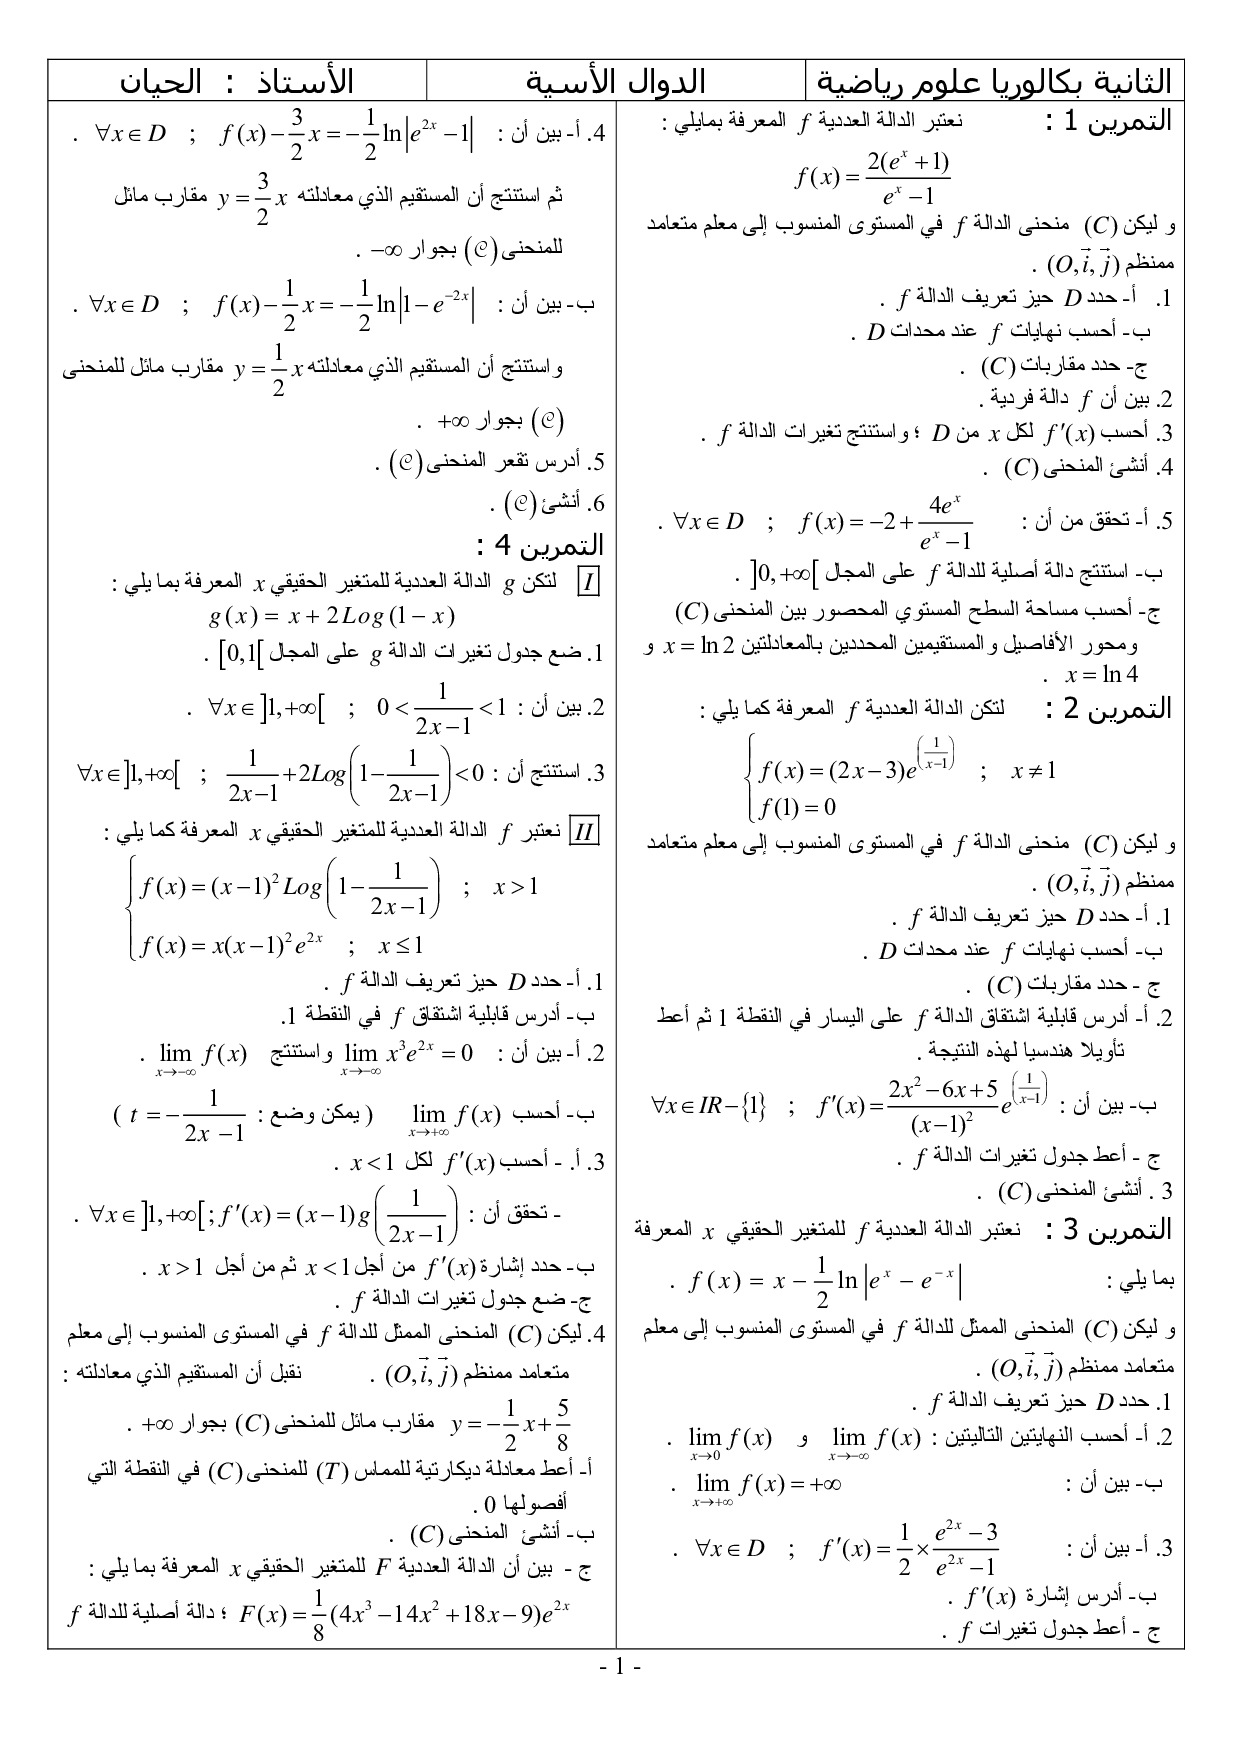 الثانية بكالوريا علوم رياضية
الدوال الأسية
الأستاذ : الحيان
التمرين 1 : نعتبر الدالة العددية f المعرفة بمايلي :
f(x) = 2(e^x + 1) / (e^x − 1)
و ليكن (C) منحنى الدالة f في المستوى المنسوب إلى معلم متعامد
ممنظم (O, i⃗, j⃗) .
1. أ- حدد D حيز تعريف الدالة f .
ب- أحسب نهايات f عند محدات D .
ج- حدد مقاربات (C) .
2. بين أن f دالة فردية .
3. أحسب f′(x) لكل x من D ؛ واستنتج تغيرات الدالة f .
4. أنشئ المنحنى (C) .
5. أ- تحقق من أن : ∀x∈D ; f(x) = −2 + 4e^x / (e^x − 1) .
ب- استنتج دالة أصلية للدالة f على المجال ]0,+∞[ .
ج- أحسب مساحة السطح المستوي المحصور بين المنحنى (C)
ومحور الأفاصيل والمستقيمين المحددين بالمعادلتين x = ln 2 و
x = ln 4 .
التمرين 2 : لتكن الدالة العددية f المعرفة كما يلي :
{ f(x) = (2x−3)e^(1/(x−1)) ; x ≠ 1
f(1) = 0
و ليكن (C) منحنى الدالة f في المستوى المنسوب إلى معلم متعامد
ممنظم (O, i⃗, j⃗) .
1. أ- حدد D حيز تعريف الدالة f .
ب- أحسب نهايات f عند محدات D .
ج - حدد مقاربات (C) .
2. أ- أدرس قابلية اشتقاق الدالة f على اليسار في النقطة 1 ثم أعط
تأويلا هندسيا لهذه النتيجة .
ب- بين أن : ∀x∈IR−{1} ; f′(x) = (2x² − 6x + 5)/(x−1)² e^(1/(x−1))
ج - أعط جدول تغيرات الدالة f .
3 . أنشئ المنحنى (C) .
التمرين 3 : نعتبر الدالة العددية f للمتغير الحقيقي x المعرفة
بما يلي : f(x) = x − 1/2 ln|e^x − e^−x| .
و ليكن (C) المنحنى الممثل للدالة f في المستوى المنسوب إلى معلم
متعامد ممنظم (O, i⃗, j⃗) .
1. حدد D حيز تعريف الدالة f .
2. أ- أحسب النهايتين التاليتين : lim x→−∞ f(x) و lim x→0 f(x) .
ب- بين أن : lim x→+∞ f(x) = +∞ .
3. أ- بين أن : ∀x∈D ; f′(x) = 1/2 × (e^2x − 3)/(e^2x − 1) .
ب- أدرس إشارة f′(x) .
ج - أعط جدول تغيرات f .
4. أ- بين أن : ∀x∈D ; f(x) − 3/2 x = −1/2 ln|e^2x − 1| .
ثم استنتج أن المستقيم الذي معادلته y = 3/2 x مقارب مائل
للمنحنى (𝒞) بجوار −∞ .
ب- بين أن : ∀x∈D ; f(x) − 1/2 x = −1/2 ln|1 − e^−2x| .
واستنتج أن المستقيم الذي معادلته y = 1/2 x مقارب مائل للمنحنى
(𝒞) بجوار +∞ .
5. أدرس تقعر المنحنى (𝒞) .
6. أنشئ (𝒞) .
التمرين 4 :
I لتكن g الدالة العددية للمتغير الحقيقي x المعرفة بما يلي :
g(x) = x + 2Log(1 − x)
1. ضع جدول تغيرات الدالة g على المجال [0,1[ .
2. بين أن : ∀x∈]1,+∞[ ; 0 < 1/(2x−1) < 1 .
3. استنتج أن : ∀x∈]1,+∞[ ; 1/(2x−1) + 2Log(1 − 1/(2x−1)) < 0
II نعتبر f الدالة العددية للمتغير الحقيقي x المعرفة كما يلي :
{ f(x) = (x−1)² Log(1 − 1/(2x−1)) ; x > 1
f(x) = x(x−1)² e^2x ; x ≤ 1
1. أ- حدد D حيز تعريف الدالة f .
ب- أدرس قابلية اشتقاق f في النقطة 1.
2. أ- بين أن : lim x→−∞ x³e^2x = 0 واستنتج lim x→−∞ f(x) .
ب- أحسب lim x→+∞ f(x) ( يمكن وضع : t = −1/(2x−1) )
3. أ. - أحسب f′(x) لكل x < 1 .
- تحقق أن : ∀x∈]1,+∞[ ; f′(x) = (x−1)g(1/(2x−1)) .
ب- حدد إشارة f′(x) من أجل x < 1 ثم من أجل x > 1 .
ج- ضع جدول تغيرات الدالة f .
4. ليكن (C) المنحنى الممثل للدالة f في المستوى المنسوب إلى معلم
متعامد ممنظم (O, i⃗, j⃗) . نقبل أن المستقيم الذي معادلته :
y = −1/2 x + 5/8 مقارب مائل للمنحنى (C) بجوار +∞ .
أ- أعط معادلة ديكارتية للمماس (T) للمنحنى (C) في النقطة التي
أفصولها 0 .
ب- أنشئ المنحنى (C) .
ج - بين أن الدالة العددية F للمتغير الحقيقي x المعرفة بما يلي :
F(x) = 1/8 (4x³ − 14x² + 18x − 9)e^2x ؛ دالة أصلية للدالة f
- 1 -